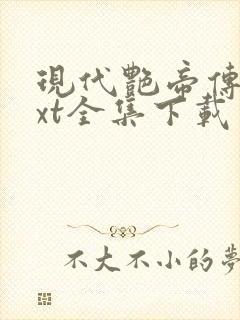 現代艷帝傳
xt全集下載
不大不小的夢